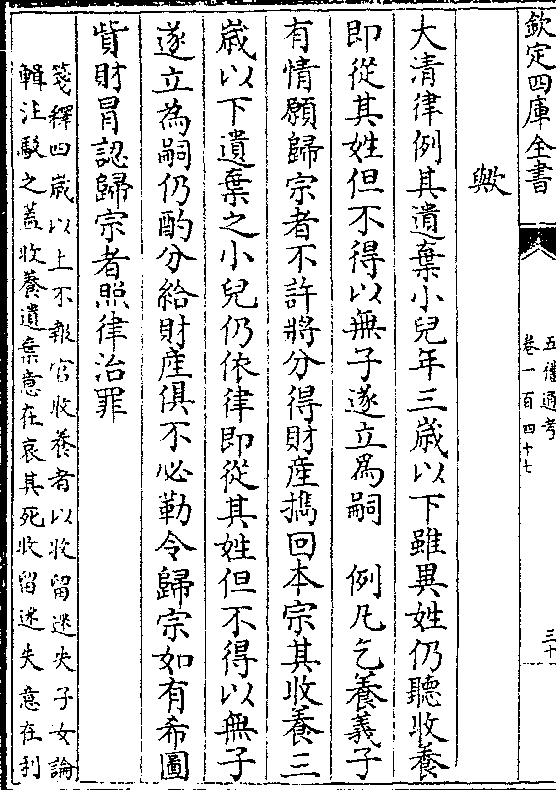 欽定四庫全書
五禮通考
卷一百四十七
三十
歟
大清律例其遺棄小兒年三歲以下雖異姓仍聽收養
即從其姓但不得以無子遂立爲嗣　例凡乞養義子
有情願歸宗者不許將分得財產攜回本宗其收養三
歲以下遺棄之小兒仍依律即從其姓但不得以無子
遂立為嗣仍酌分給財產俱不必勒令歸宗如有希圖
貲財冐認歸宗者照律治罪
箋釋四歲以上不報官收養者以收留迷失子女論
輯注駁之蓋收養遺棄意在哀其死收留迷失意在利